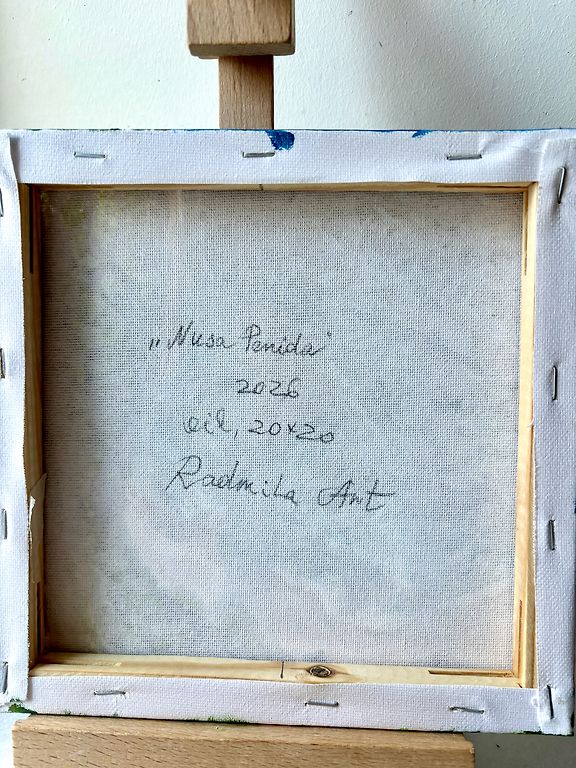 „Nusa Penida"
2026
oil, 20x20
Radmila Art